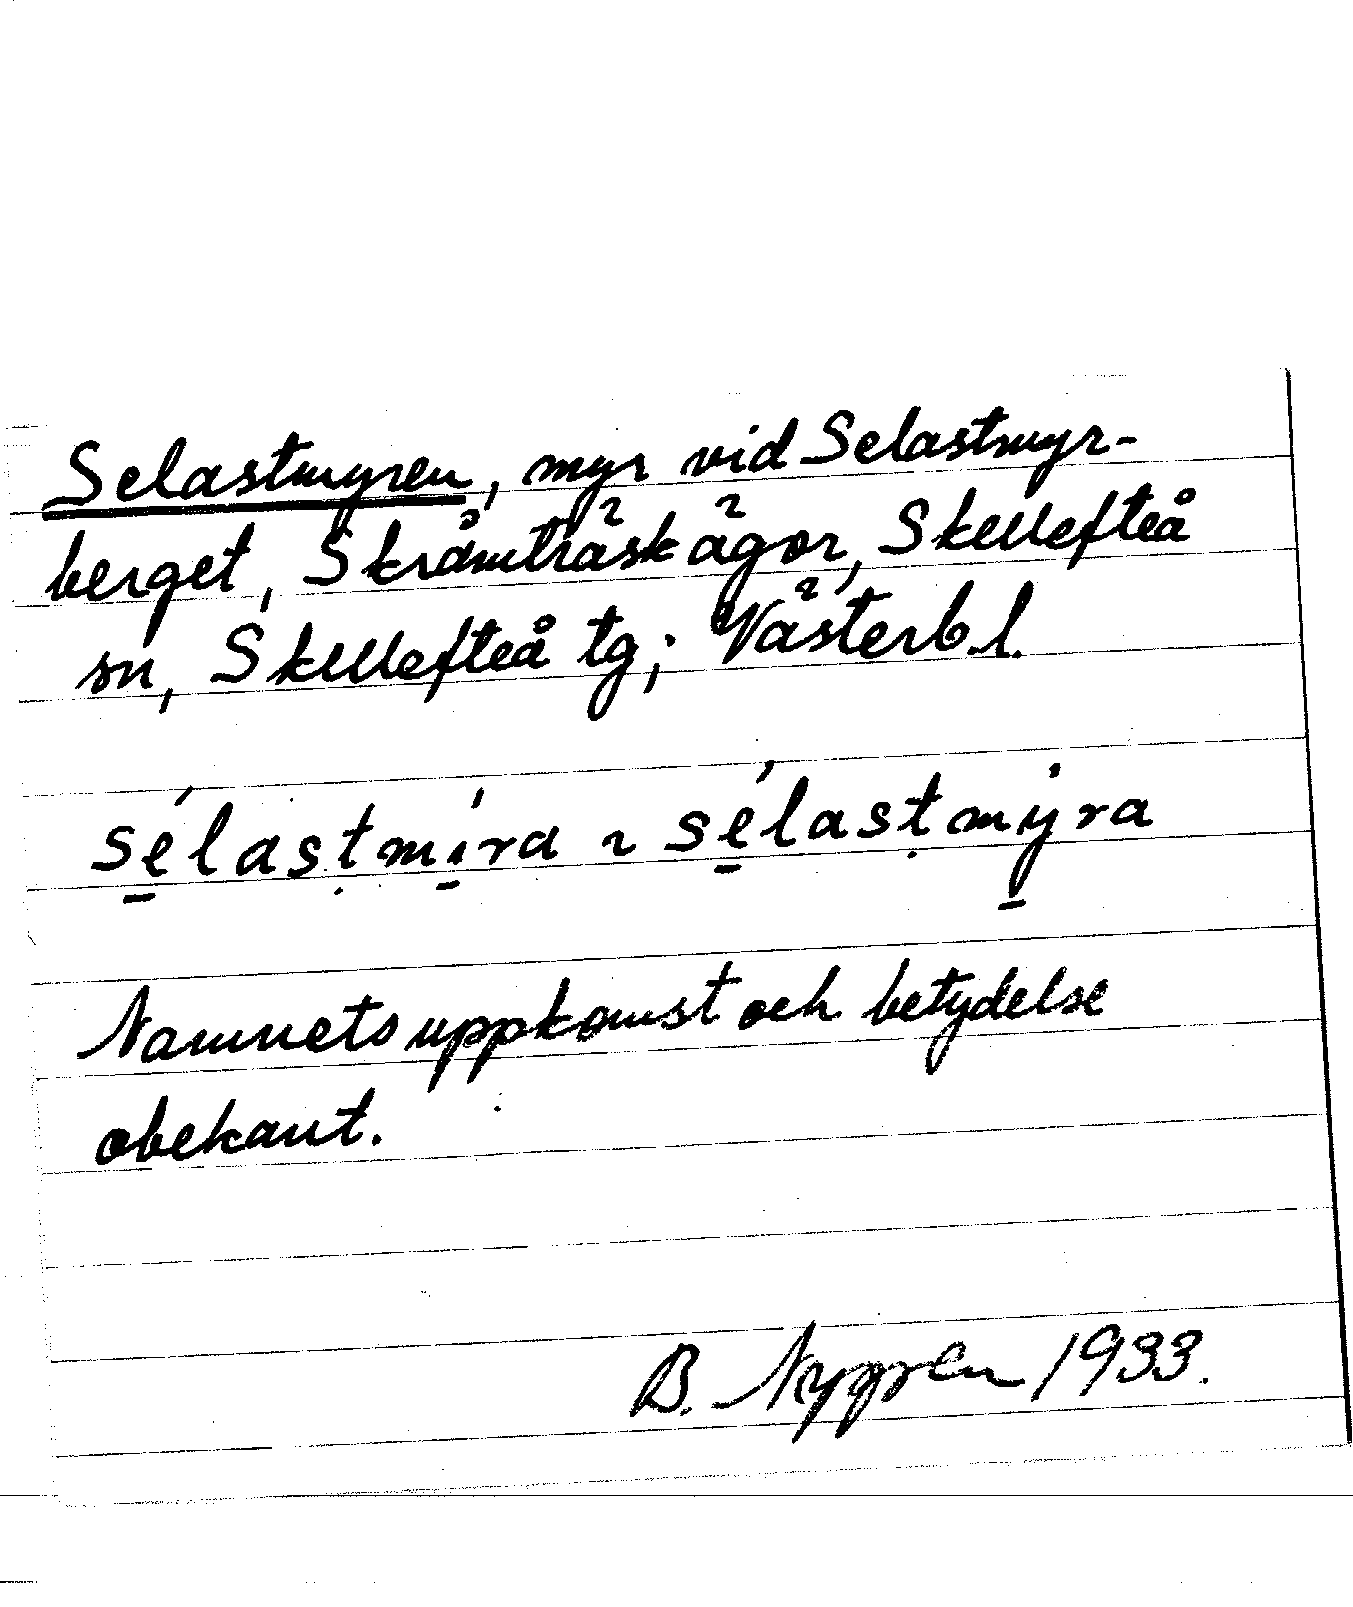 Selastmyren, myr vid Selastmyr-
berget, Skråmträsk ägor, Skellefteå
sn, Skellefteå tg; Västerb. l.
sé̠lasṭmí̠ra ~ sé̠lasṭmý̠ra
Namnets uppkomst och betydelse
obekant.
B. Nygren 1933.